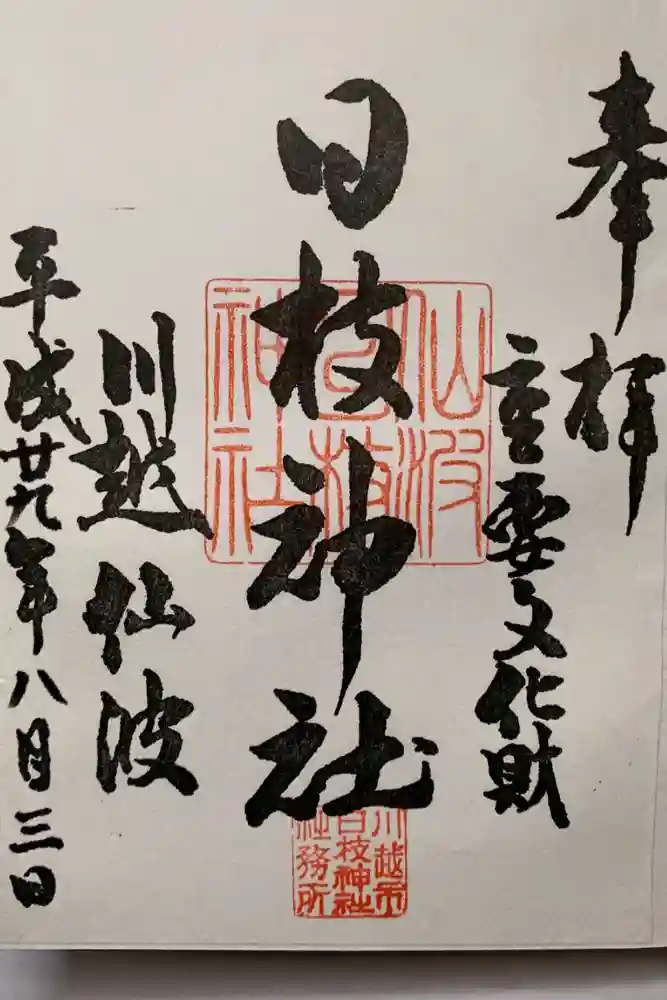 奉拝
重要文化財
日枝神社
仙波
日枝
神社
川越市
日枝神社
社務所
川越仙波
平成廿九年八月三日